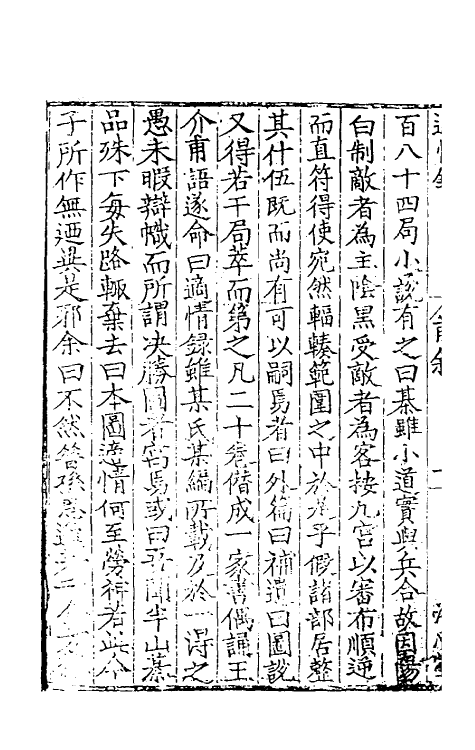 百八十四局小說有之曰棊雖小道實與兵合故因陽
白制敵者為主陰黑受敵者為客按九宮以審布順逆
而直符得使宛然輻輳範圍之中於是乎假諸部居整
其什伍既而尚有可以嗣焉者曰外篇曰補遺曰圖說
又得若干局萃而第之凡二十卷僭成一家書偶誦王
介甫語遂命曰適情錄雖某氏某編所載及於一得之
愚未暇辯幟而所謂决勝圖者寓焉或曰吾聞半山棊
品殊下每失路輙棄去曰本圖適情何至勞神若此今
子所作無迺異是邪余曰不然昔孫